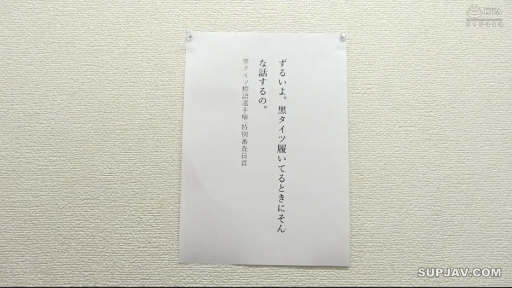 ずるいよ。黒タイツ履いてるときにそん
な話するの。
黒タイツ標語選手権 特別審査員賞
SUPJAV.COM